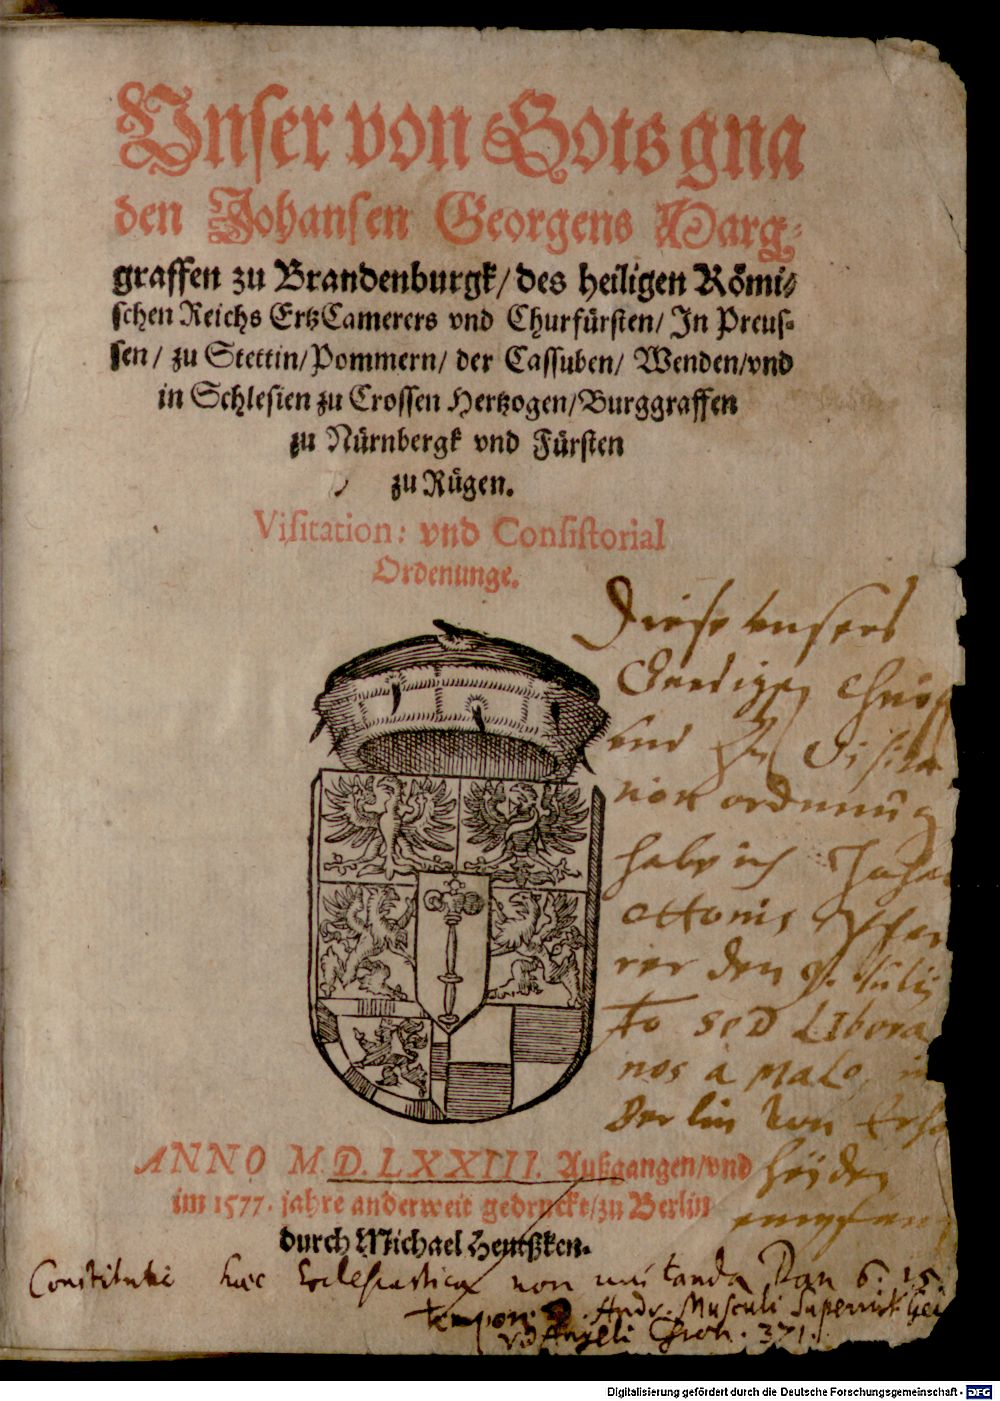 Unser von Gots gna
den Johansen Georgens Marg-
graffen zu Brandenburgk/ des heiligen Römi-
schen Reichs ErtzCamerers vnd Churfürsten/ In Preus-
sen/ zu Stettin/ Pommern/ der Cassuben/ Wenden/ vnd
in Schlesien zu Crossen Hertzogen/ Burggraffen
zu Nürnbergk vnd Fürsten
zu Rügen.
Visitation: vnd Consistorial
Ordenunge.
Diese vnsers
Gnedigen
vnd Visita
tion ordnung
habe ich
ottonis Pfar
rer den Julij
sed LIbera
nos a maLo in
Berlin von
heiden
ANNO M.D.LXXIII. Außgangen/ vnd
im 1577. jahre anderweit gedruckt/ zu Berlin
durch Michael Hentzken.
Constitutio haec Ecclesiastica non mutanda Dan 6. 15.
tempor. D. Andr. Musculi Superint
Angeli Chron. 371.
Digitalisierung gefördert durch die Deutsche Forschungsgemeinschaft - DFG